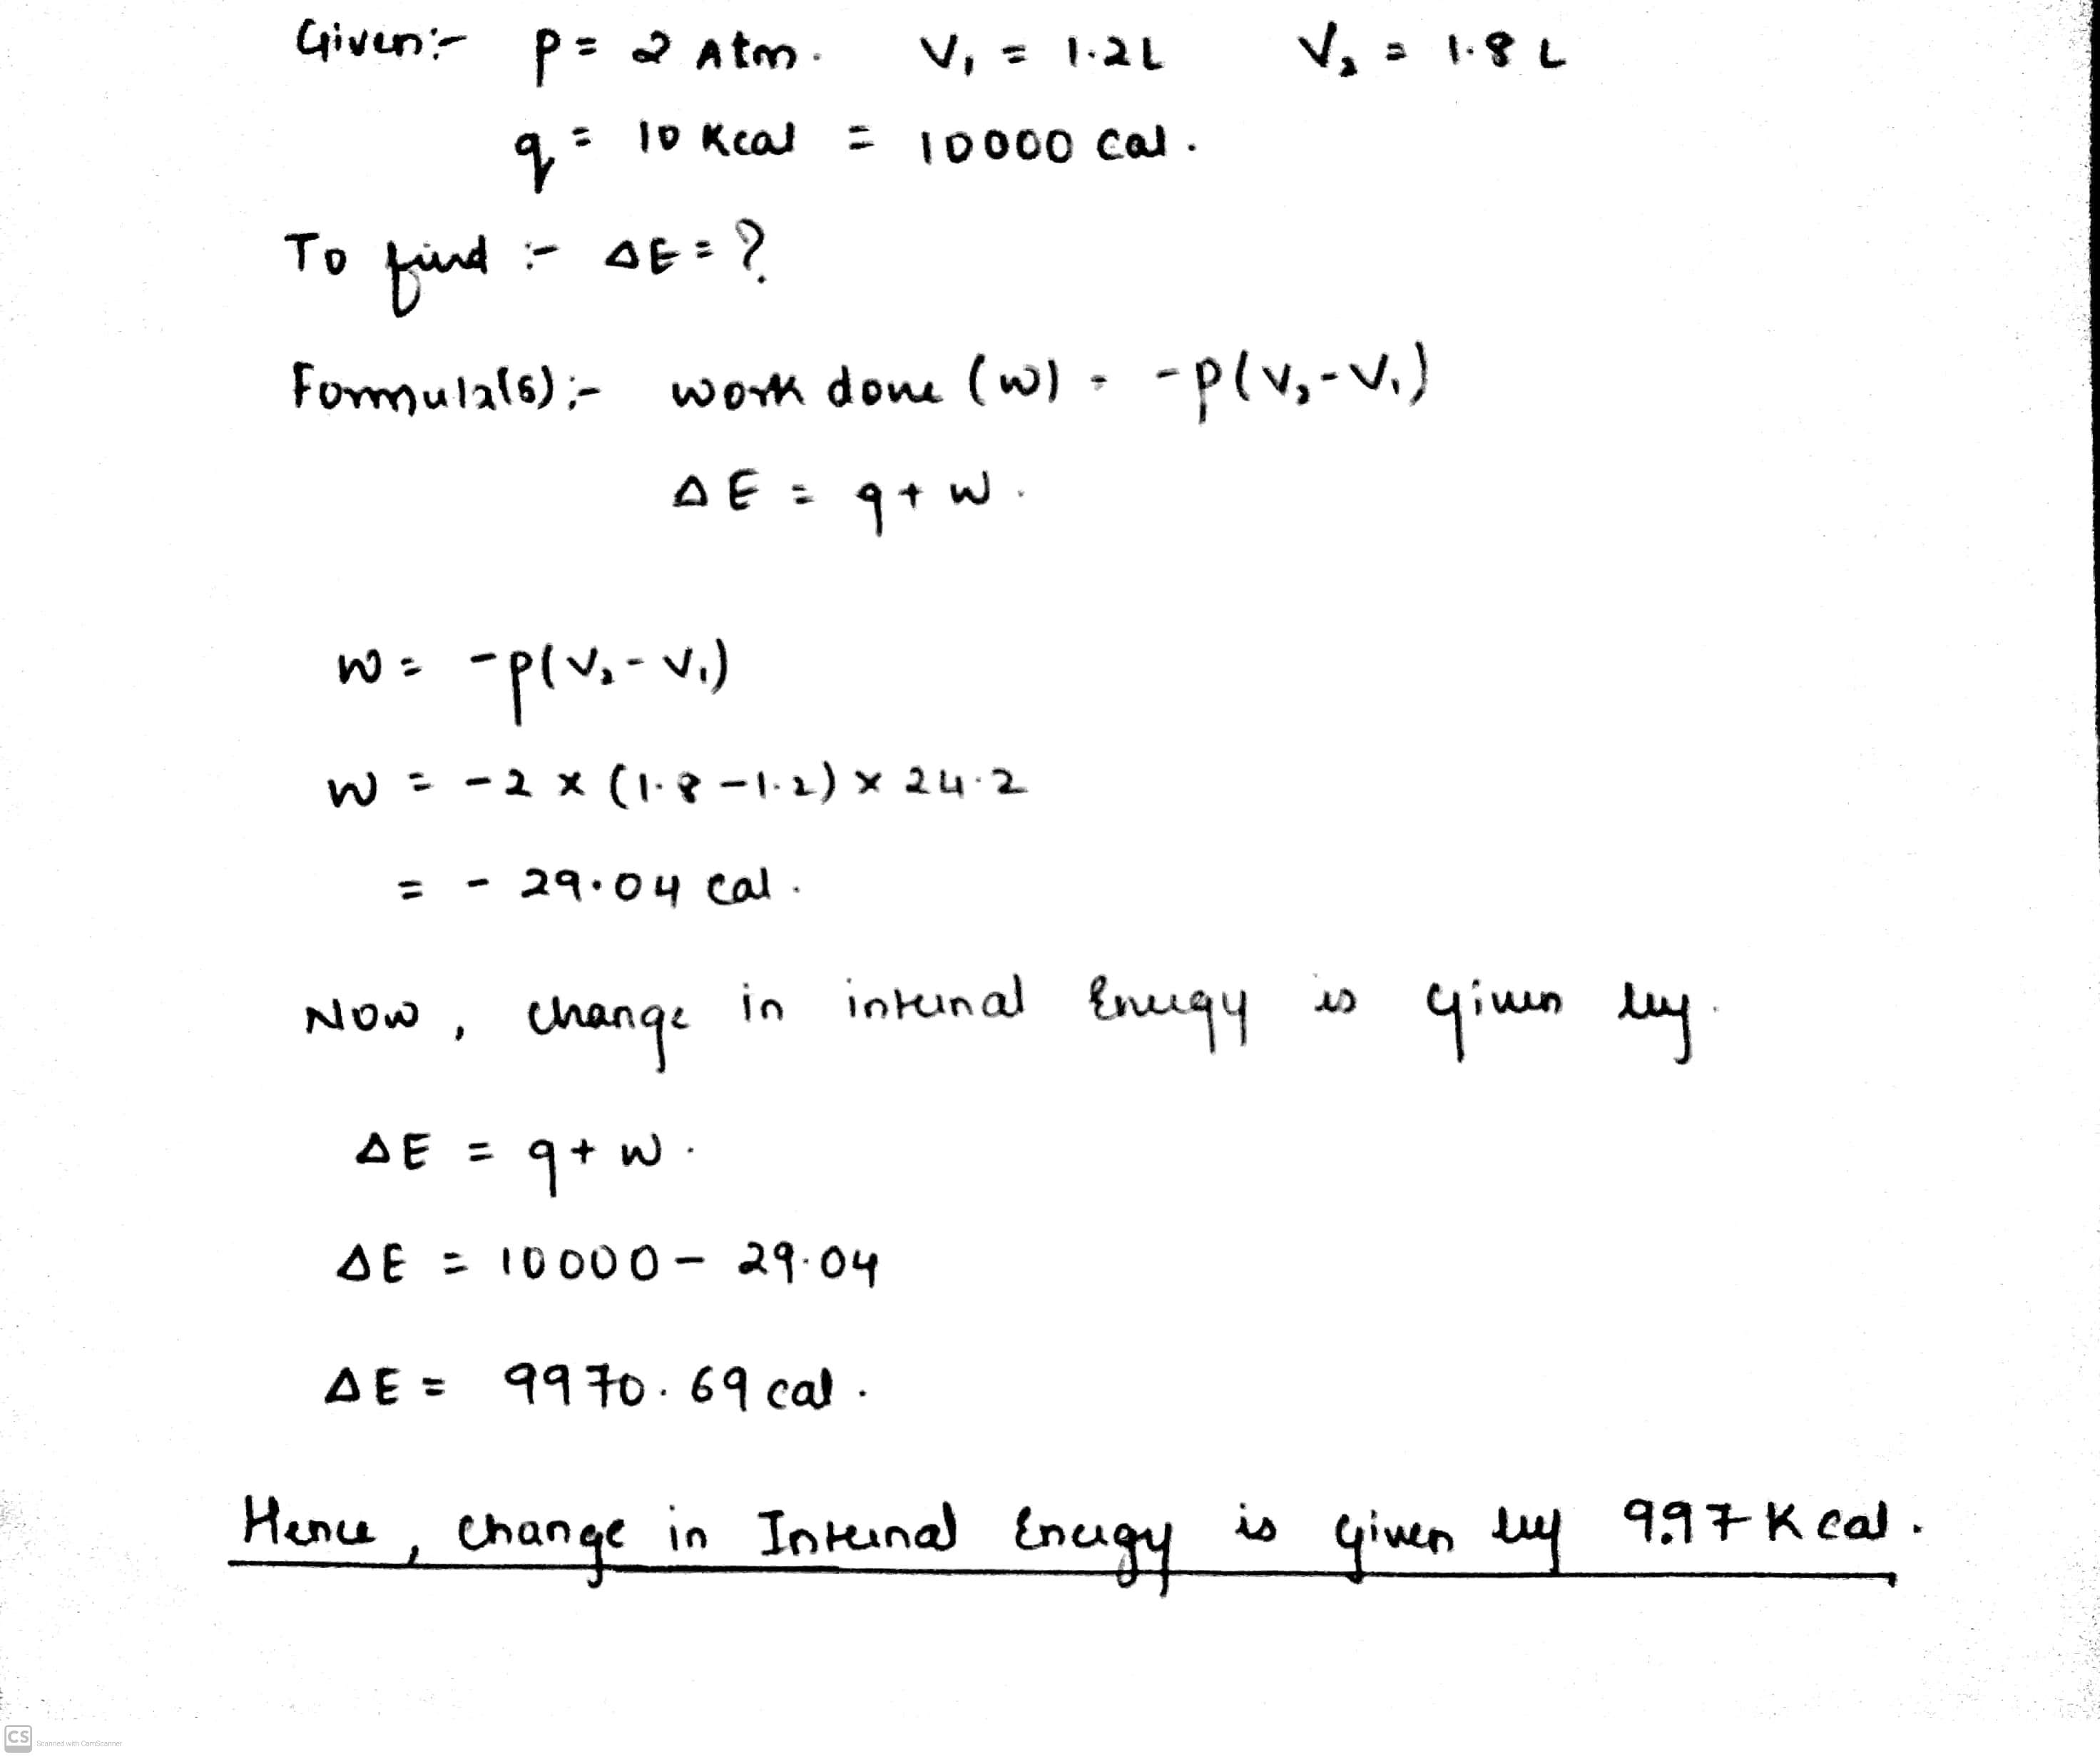 Given:- P = 2 Atm. V₁ = 1.2L V₂ = 1.8 L
q = 10 Kcal = 10000 cal.
To find :- ΔE = ?
Formula(s):- work done (w) = -P(V₂-V₁)
ΔE = q+w.
w = -P(V₂-V₁)
w = -2 x (1.8-1.2) x 24.2
= - 29.04 cal.
Now, change in internal Energy is given by.
ΔE = q+w.
ΔE = 10000 - 29.04
ΔE = 9970.69 cal.
Hence, change in Internal Energy is given by 9.97 Kcal.
CS Scanned with CamScanner